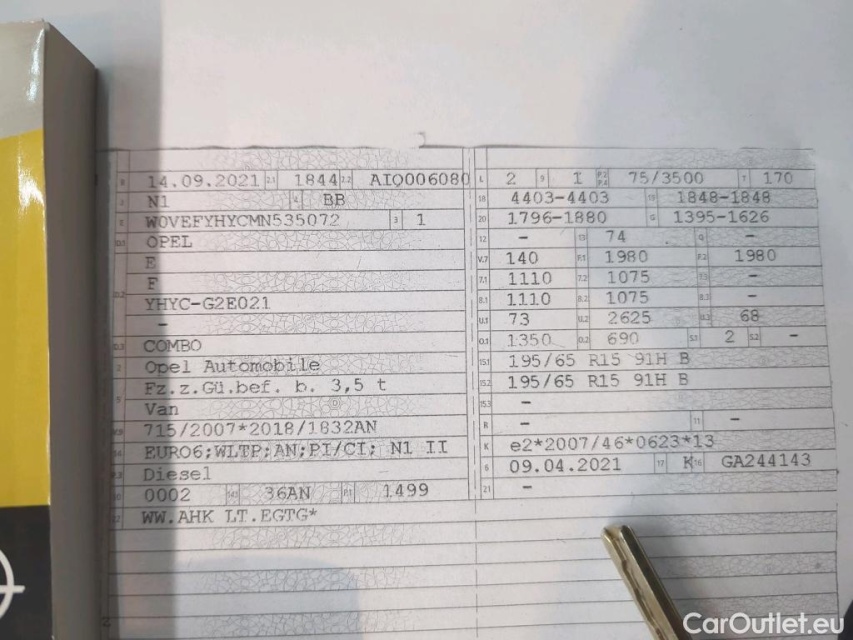 B 14.09.2021 2.1 1844 2.2 AIQ006080
J N1 4 BB
E W0VEFYHYCMN535072 3 1
D.1 OPEL
E
D.2 F
YHYC-G2E021
-
D.3 COMBO
2 Opel Automobile
5 Fz.z.Gü.bef. b. 3,5 t
Van
V.9 715/2007*2018/1832AN
14 EURO6;WLTP;AN;PI/CI; N1 II
P.3 Diesel
10 0002 14.1 36AN P.1 1499
22 WW.AHK LT.EGTG*
L 2 9 1 P.2 P.4 75/3500 T 170
18 4403-4403 19 1848-1848
20 1796-1880 G 1395-1626
12 - 13 74 Q -
V.7 140 F.1 1980 F.2 1980
7.1 1110 7.2 1075 7.3 -
8.1 1110 8.2 1075 8.3 -
U.1 73 U.2 2625 U.3 68
O.1 1350 O.2 690 S.1 2 S.2 -
15.1 195/65 R15 91H B
15.2 195/65 R15 91H B
15.3 -
R - 11 -
K e2*2007/46*0623*13
6 09.04.2021 17 K 16 GA244143
21 -
CarOutlet.eu